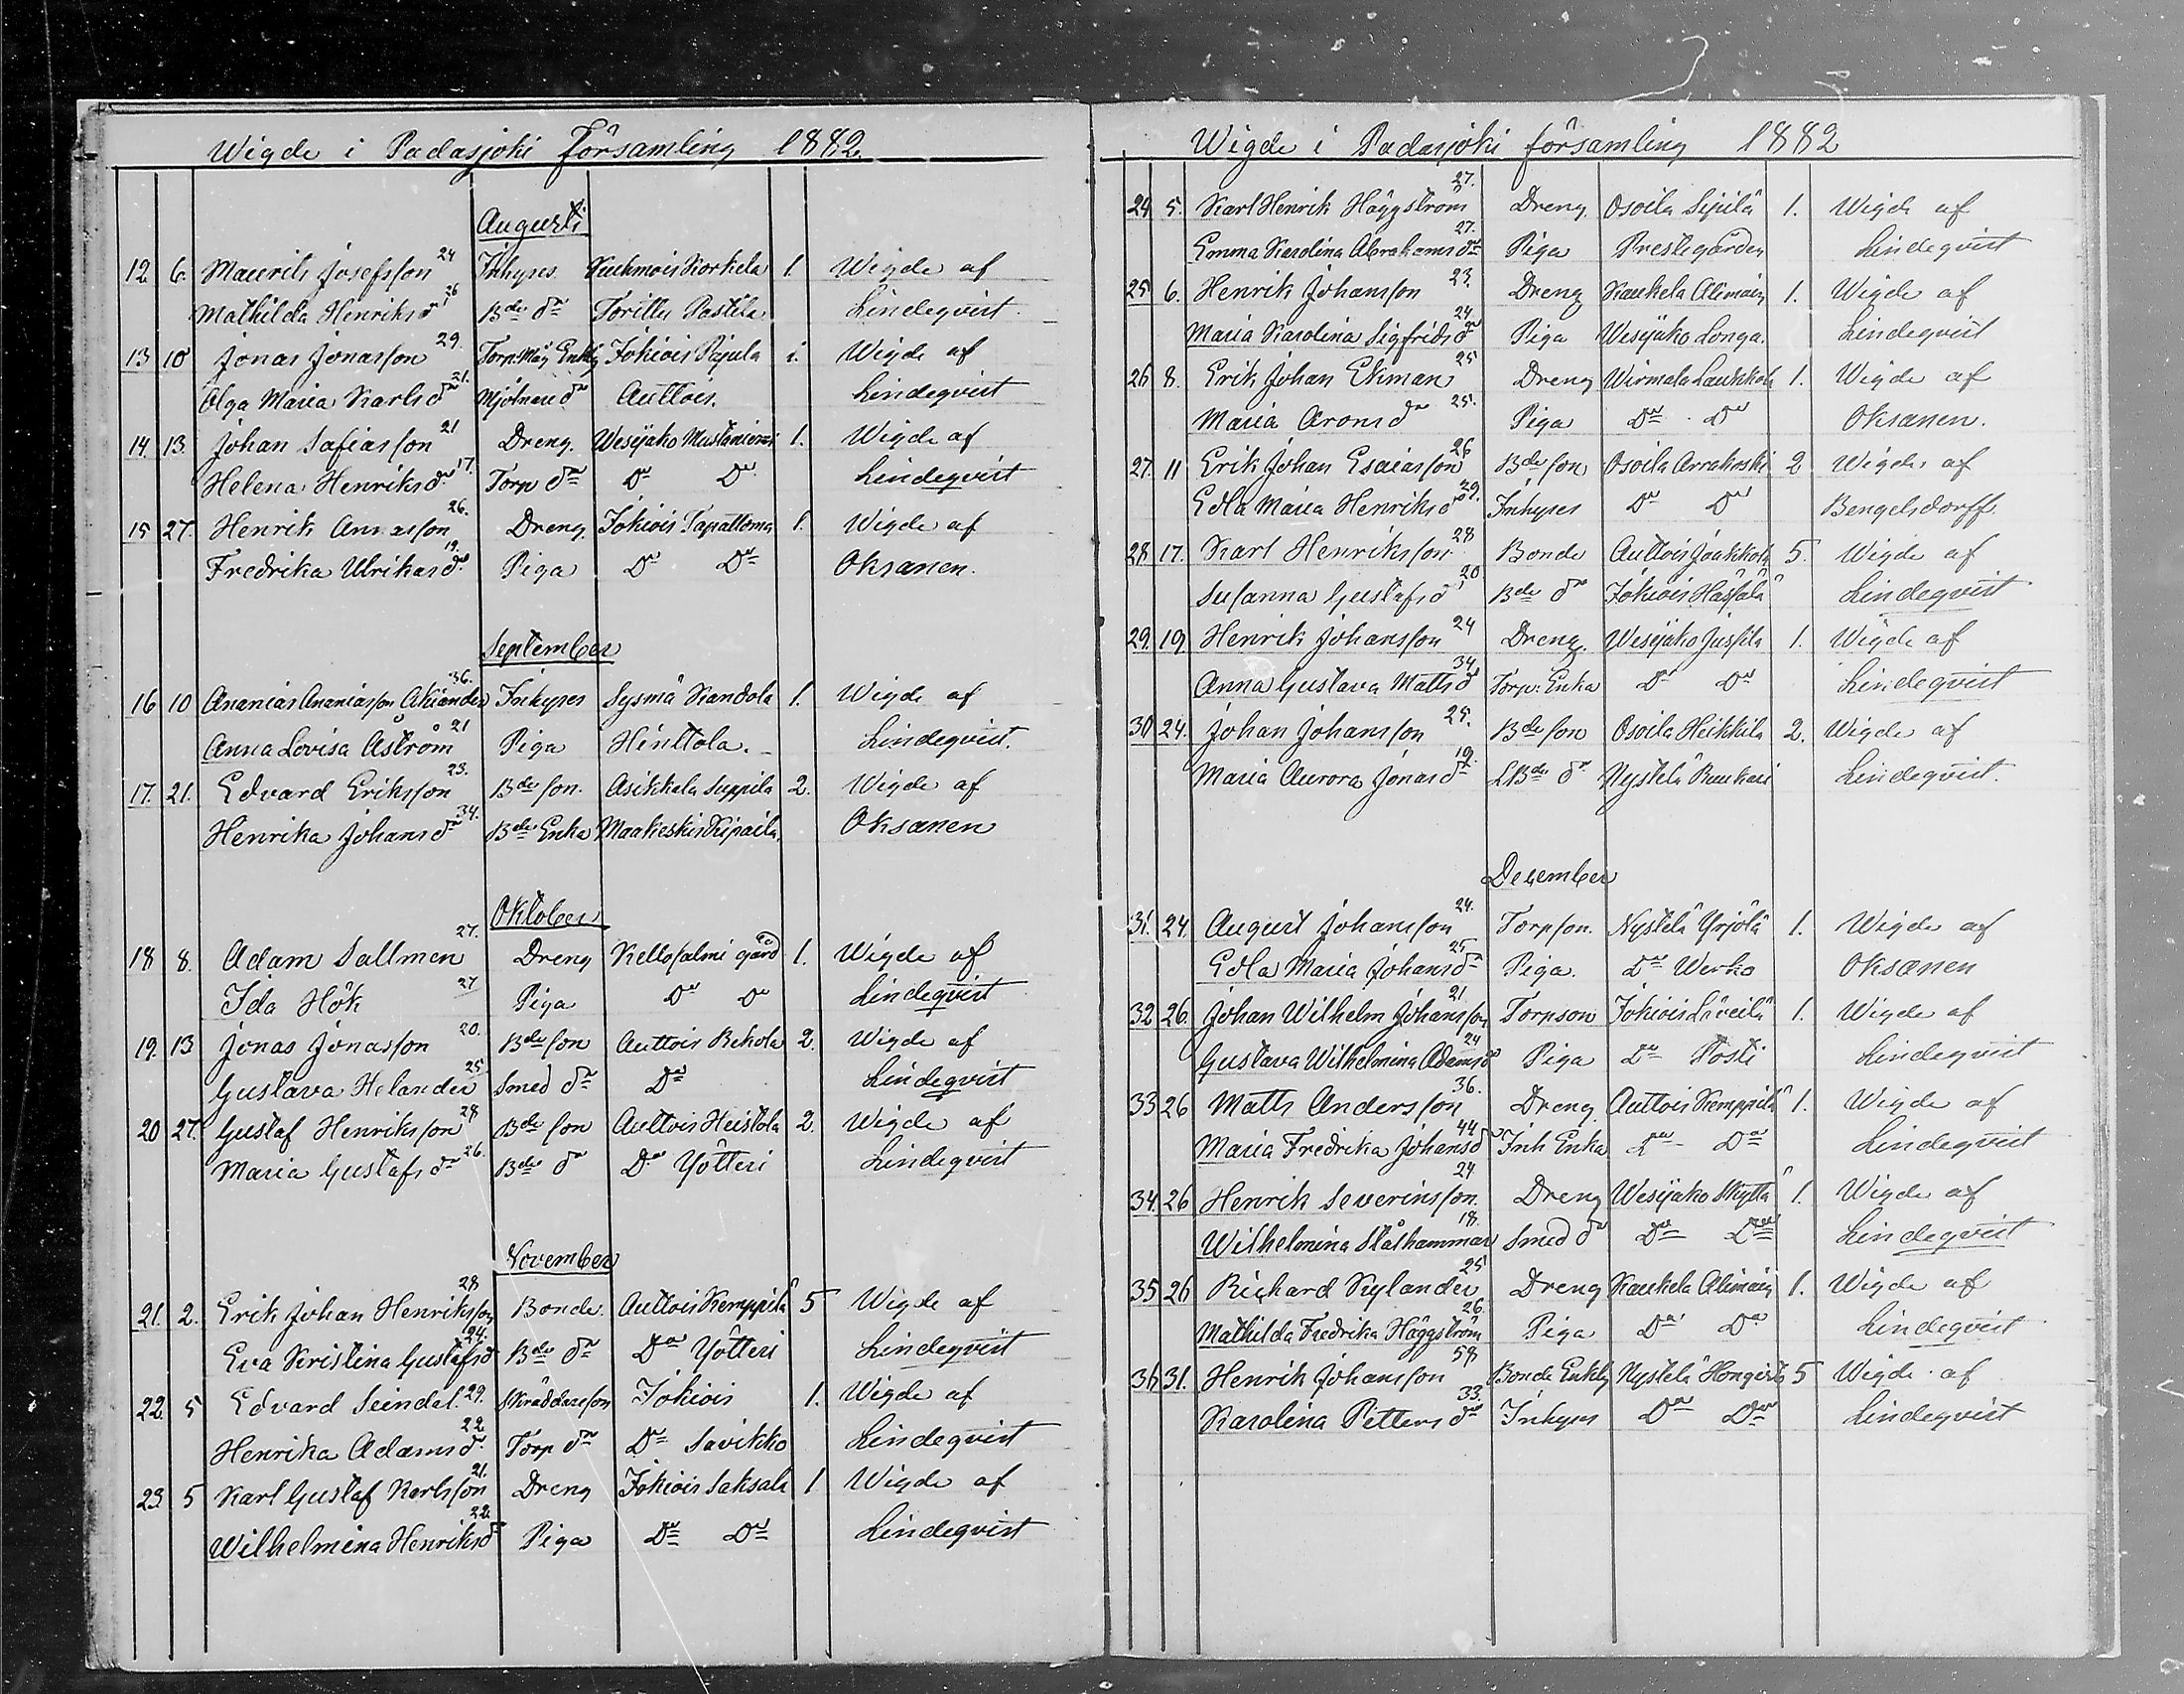 Wigde i Padasjoki Församling 1882.
Augusti
12 6. Maurits Josefsson 24 Inhyses Kuhmois Korkela 1. Wigde af
Mathilda Henriksdr 26 Bde dr Torittu Pastila Lindeqvist
13 10 Jonas Jonasson 29. Torp. Måg Enkling Jokiois 1. Wigde af
Olga Maria Karlsdr 21. Mjölnare dr Auttois. Lindeqvist
14. 13. Johan Safiasson 21 Dreng. Wesijako 1. Wigde af
Helena Henriksdr 17. Torp dr Do Do Lindeqvist
15 27. Henrik Annasson 26. Dreng Jokiois 1. Wigde af
Fredrika Ulrikasdr 19. Piga Do Do Oksanen.
September
16 10 Ananias Ananiasson Akiander 36. Inhyses Sysmä Kandola 1. Wigde af
Anna Lovisa Åström 21 Piga Hinttola. Lindeqvist.
17. 21. Edvard Eriksson 23. Bde son. Asikkala Seppilä 2. Wigde af
Henrika Johansdr 34. Bde Enka Maakeski Lindeqvist Oksanen
Oktober
18 8. Adam Sallmen 27. Dreng Kellosalmi gård 1. Wigde af
Ida Hök 27 Piga Do Do Lindeqvist
19. 13 Jonas Jonasson 20. Bde son Auttois Rekola 2. Wigde af
Gustava Helander 25 Smed dr Do Lindeqvist
20 27. Gustaf Henriksson 28 Bde son Auttois Heistola 2. Wigde af
Maria Gustafsdr 26. Bde dr Do Yötteri Lindeqvist
November
21. 2. Erik Johan Henriksson 28 Bonde. Auttois Kemppilä 5 Wigde af
Eva Kristina Gustafsdr 24. Bde dr Do Yötteri Lindeqvist
22. 5 Edvard Seindal. 29. Skräddareson Jokiois 1. Wigde af
Henrika Adamsdr 22 Torp dr Do Savikko Lindeqvist
23 5 Karl Gustaf Karlsson 21. Dreng Jokiois Saksala 1 Wigde af
Wilhelmina Henriksdr 22. Piga Do Do Lindeqvist
Wigde i Padasjoki församling 1882
24 5. Karl Henrik Häggström 27. Dreng Osoila Sipilä 1. Wigde af
Emma Karolina Abrahamsdr 27. Piga Prestegården Lindeqvist
25 6. Henrik Johansson 23. Dreng Kaukela Alimain 1. Wigde af
Maria Karolina Sigfridsdr 24. Piga Wesijako Longa. Lindeqvist
26 8. Erik Johan Ekman 25 Dreng Wirmala Laukkola 1. Wigde af
Maria Aronsdr 25. Piga Do Do Oksanen.
27. 11 Erik Johan Esaiasson 26 Bde son Osoila Arrakoski 2 Wigde af
Edla Maria Henriksdr 29. Inhyses Do Do Bengelsdorff.
28. 17. Karl Henriksson 28 Bonde Auttois Jaakkola 5. Wigde af
Susanna Gustafsdr 20 Bde dr Jokiois Hassala Lindeqvist
29. 19 Henrik Johansson 24 Dreng. Wesijako Jussila 1. Wigde af
Anna Gustava Mattsdr 34. Torp. Enka Do Do Lindeqvist
30 24. Johan Johansson 25. Bde son Osoila Heikkilä 2. Wigde af
Maria Aurora Jonasdr 19. LBde dr Nystölä Ruukari Lindeqvist.
December
31. 24. August Johansson 24. Torpson. Nystölä Yrjölä 1. Wigde af
Edla Maria Johansdr 25 Piga. Do Werho Oksanen
32 26. Johan Wilhelm Johansson 21 Torpson Jokiois 1. Wigde af
Gustava Wilhelmina Adamsdr 24 Piga Do Posti Lindeqvist
33 26 Matts Andersson 36. Dreng Auttois Kemppilä 1. Wigde af
Maria Fredrika Johansdr 44 Inh Enka Do Do Lindeqvist
34. 26 Henrik Severinsson. 24 Dreng Wesijako Skyttä 1. Wigde af
Wilhelmina Stålhammar 18. Smed dr Do Do Lindeqvist
35 26 Richard Kylander 25 Dreng Kaukela Alimain 1. Wigde af
Mathilda Fredrika Häggström 26. Piga Do Do Lindeqvist
36 31. Henrik Johansson 58 Bonde Enkling Nystölä Hongisto 5 Wigde af
Karolina Pettersdr 33. Inhyses Do Do Lindeqvist